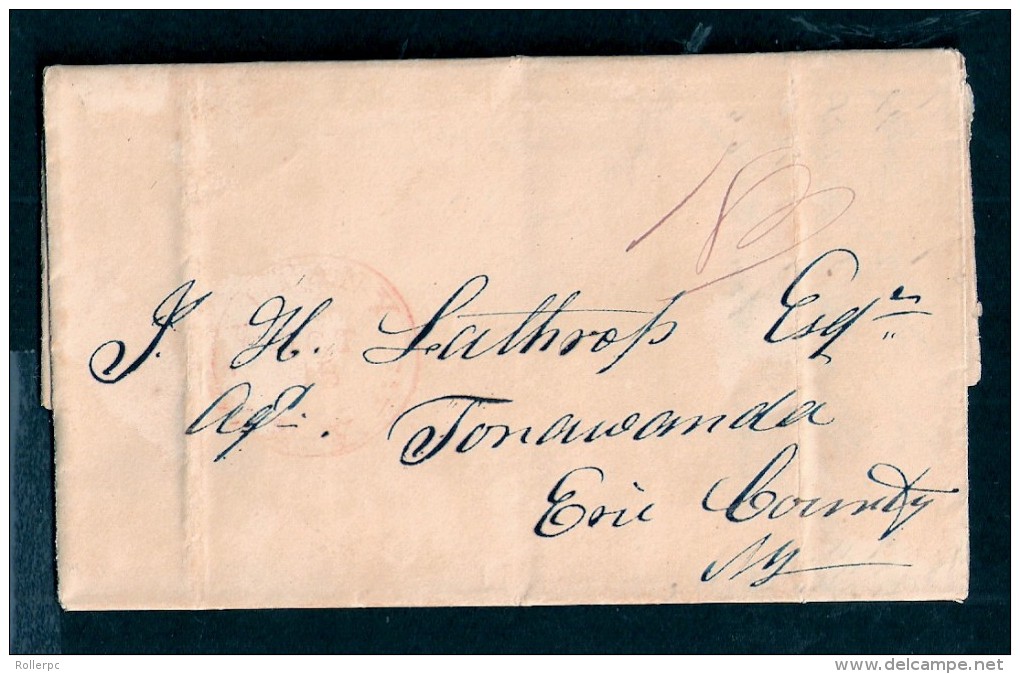 J. H. Lathrop Esqr
Agt. Tonawanda
Erie County
NY
Rollerpc
www.delcampe.net